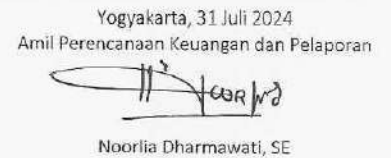 Yogyakarta, 31 Juli 2024
Amil Perencanaan Keuangan dan Pelaporan
Noorlia Dharmawati, SE